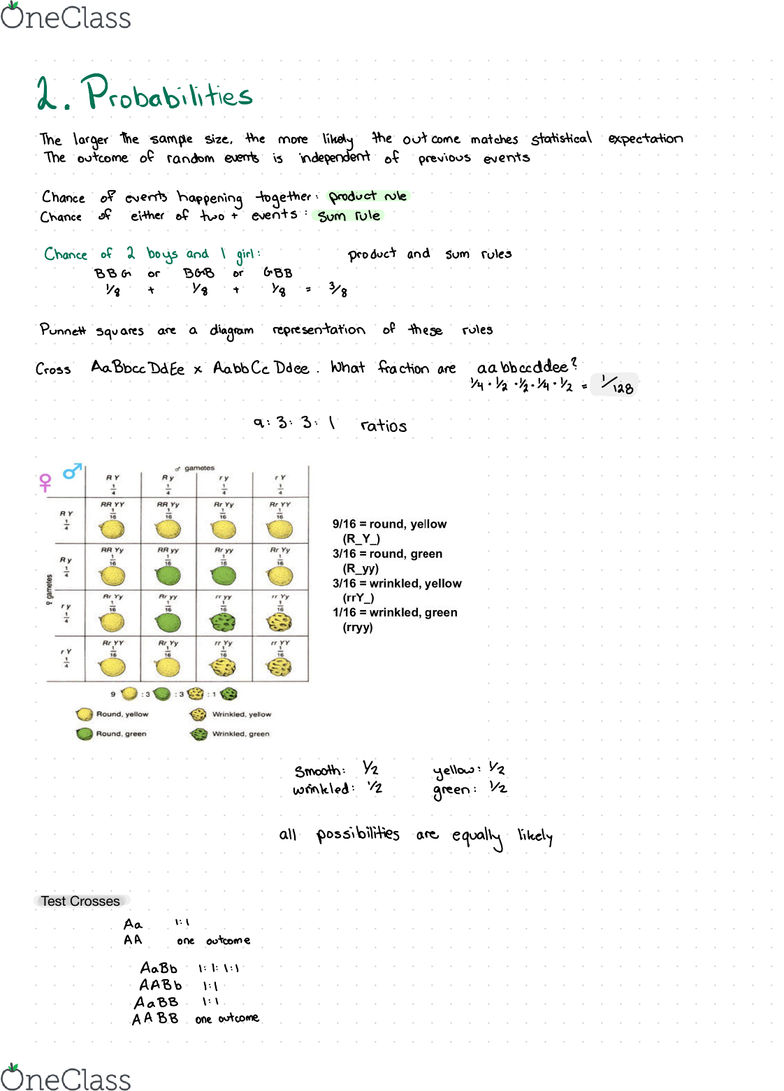 OneClass
2. Probabilities
The larger the sample size, the more likely the outcome matches statistical expectation
The outcome of random events is independent of previous events
Chance of events happening together: product rule
Chance of either of two + events: sum rule
Chance of 2 boys and 1 girl: product and sum rules
BBG or BGB or GBB
1/8 + 1/8 + 1/8 = 3/8
Punnett squares are a diagram representation of these rules
Cross AaBbccDdEe x AabbCcDdee. What fraction are aabbccddee?
1/4 · 1/2 · 1/2 · 1/4 · 1/2 = 1/128
9:3:3:1 ratios
♀ ♂ ♂ gametes
R Y R y r y r Y
1/4 1/4 1/4 1/4
R Y 1/4 RR YY 1/16 RR Yy 1/16 Rr Yy 1/16 Rr YY 1/16
R y 1/4 RR Yy 1/16 RR yy 1/16 Rr yy 1/16 Rr Yy 1/16
♀ gametes
r y 1/4 Rr Yy 1/16 Rr yy 1/16 rr yy 1/16 rr Yy 1/16
r Y 1/4 Rr YY 1/16 Rr Yy 1/16 rr Yy 1/16 rr YY 1/16
9 :3 :3 :1
Round, yellow Wrinkled, yellow
Round, green Wrinkled, green
9/16 = round, yellow
(R_Y_)
3/16 = round, green
(R_yy)
3/16 = wrinkled, yellow
(rrY_)
1/16 = wrinkled, green
(rryy)
smooth: 1/2 yellow: 1/2
wrinkled: 1/2 green: 1/2
all possibilities are equally likely
Test Crosses
Aa 1:1
AA one outcome
AaBb 1:1:1:1
AABb 1:1
AaBB 1:1
AABB one outcome
OneClass